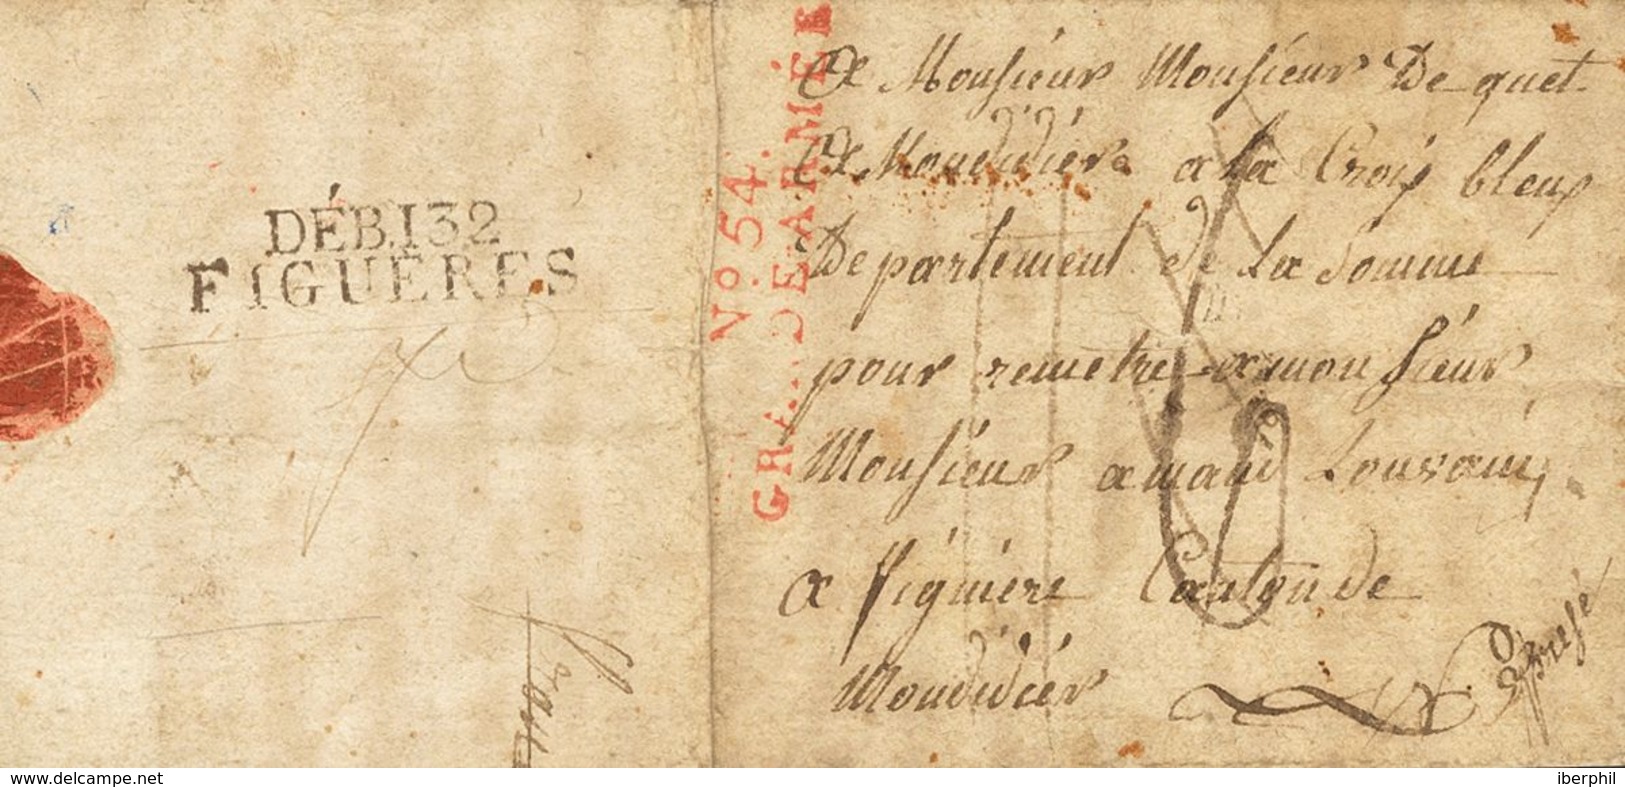 DÉB.132
FIGUÈRES
Nº. 54.
GRANDE ARMÉE
A Monsieur Monsieur De quet
A Moudidiér a la Croix bleux
Departement de La Somme
pour remetre a monsieur
Monsieur amand Louvain
a figuiere
Moudidiér
www.delcampe.net
iberphil